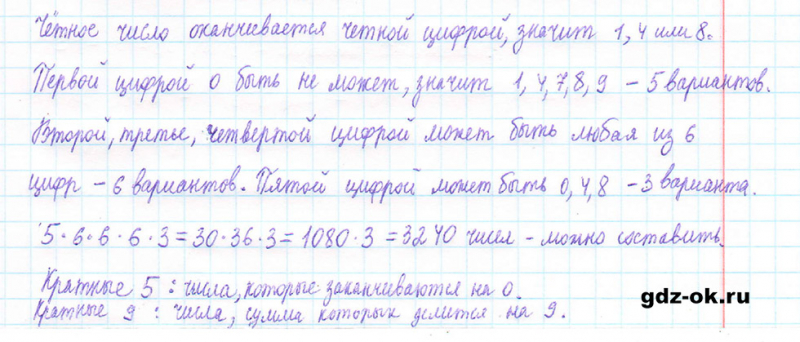 Чётное число оканчивается четной цифрой, значит 1, 4 или 8.
Первой цифрой 0 быть не может, значит 1, 4, 7, 8, 9 – 5 вариантов.
Второй, третье, четвертой цифрой может быть любая из 6
цифр – 6 вариантов. Пятой цифрой может быть 0, 4, 8 – 3 варианта.
5·6·6·6·3=30·36·3=1080·3=3240 чисел – можно составить.
Кратные 5 : числа, которые заканчиваются на 0.
Кратные 9 : числа, сумма которых делится на 9.
gdz-ok.ru